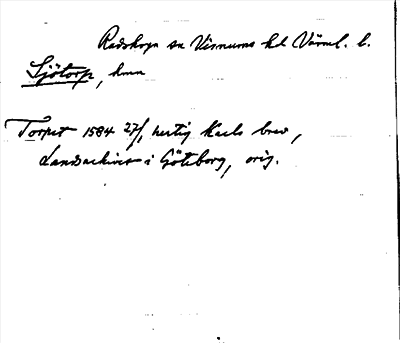 Rudskoga sn Visnums hd Värml. l.
Sjötorp, hmn
Torpet 1584 27/1, hertig Karls brev,
Landsarkivet i Göteborg, orig.